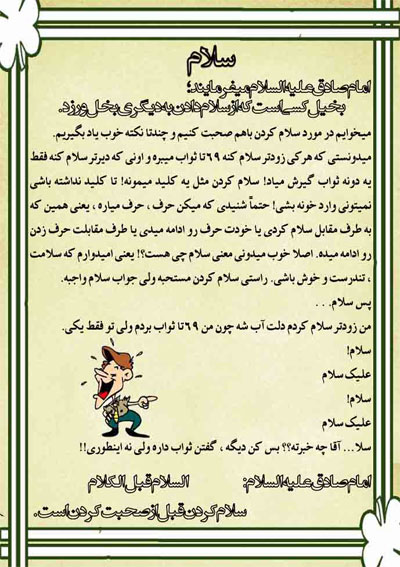 سلام
امام صادق علیه السلام میفرمایند؛
بخیل کسی است که از سلام دادن به دیگری بخل ورزد.
میخوایم در مورد سلام کردن باهم صحبت کنیم و چندتا نکته خوب یاد بگیریم.
میدونستی که هرکی زودتر سلام کنه ۶۹تا ثواب میبره و اونی که دیرتر سلام کنه فقط
یه دونه ثواب گیرش میاد! سلام کردن مثل یه کلید میمونه! تا کلید نداشته باشی
نمیتونی وارد خونه بشی! حتماً شنیدی که میکن حرف ، حرف میاره ، یعنی همین که
به طرف مقابل سلام کردی یا خودت حرف رو ادامه میدی یا طرف مقابلت حرف زدن
رو ادامه میده. اصلا خوب میدونی معنی سلام چی هست؟! یعنی امیدوارم که سلامت
، تندرست و خوش باشی. راستی سلام کردن مستحبه ولی جواب سلام واجبه.
پس سلام. . .
من زودتر سلام کردم دلت آب شه چون من ۶۹تا ثواب بردم ولی تو فقط یکی.
سلام!
علیک سلام
سلام!
علیک سلام
سلا... آقا چه خبرته؟؟ بس کن دیگه ، گفتن ثواب داره ولی نه اینطوری!!
امام صادق علیه السلام: السلام قبل الکلام
سلام کردن قبل از صحبت کردن است.